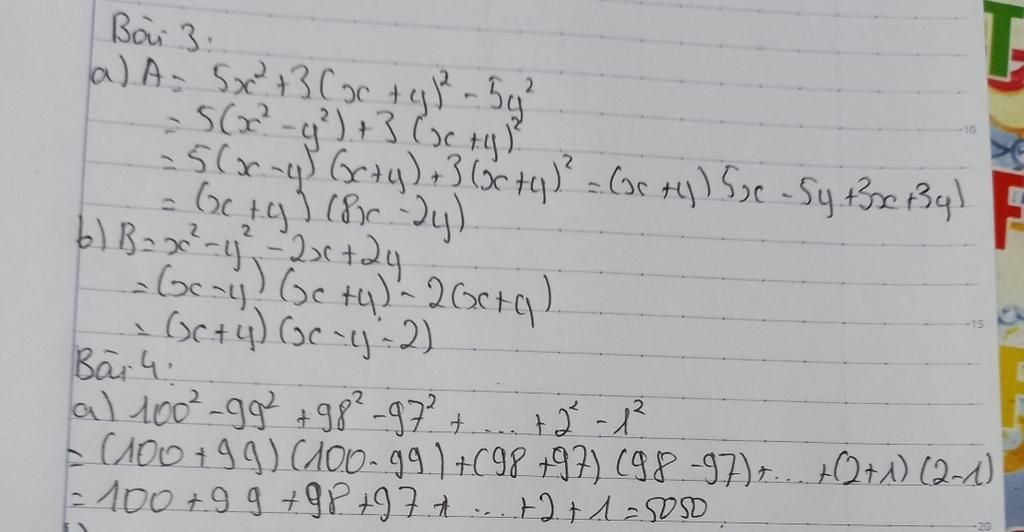 Bài 3:
a) A = 5x² + 3(x + y)² - 5y²
= 5(x² - y²) + 3(x + y)²
= 5(x - y)(x + y) + 3(x + y)² = (x + y) 5x - 5y + 3x + 3y)
= (x + y)(8x - 2y)
b) B = x² - y² - 2x + 2y
= (x - y)(x + y) - 2(x + y)
= (x + y)(x - y - 2)
Bài 4:
a) 100² - 99² + 98² - 97² + ... + 2² - 1²
= (100 + 99)(100 - 99) + (98 + 97)(98 - 97) + ... + (2 + 1)(2 - 1)
= 100 + 99 + 98 + 97 + ... + 2 + 1 = 5050
10
15
20